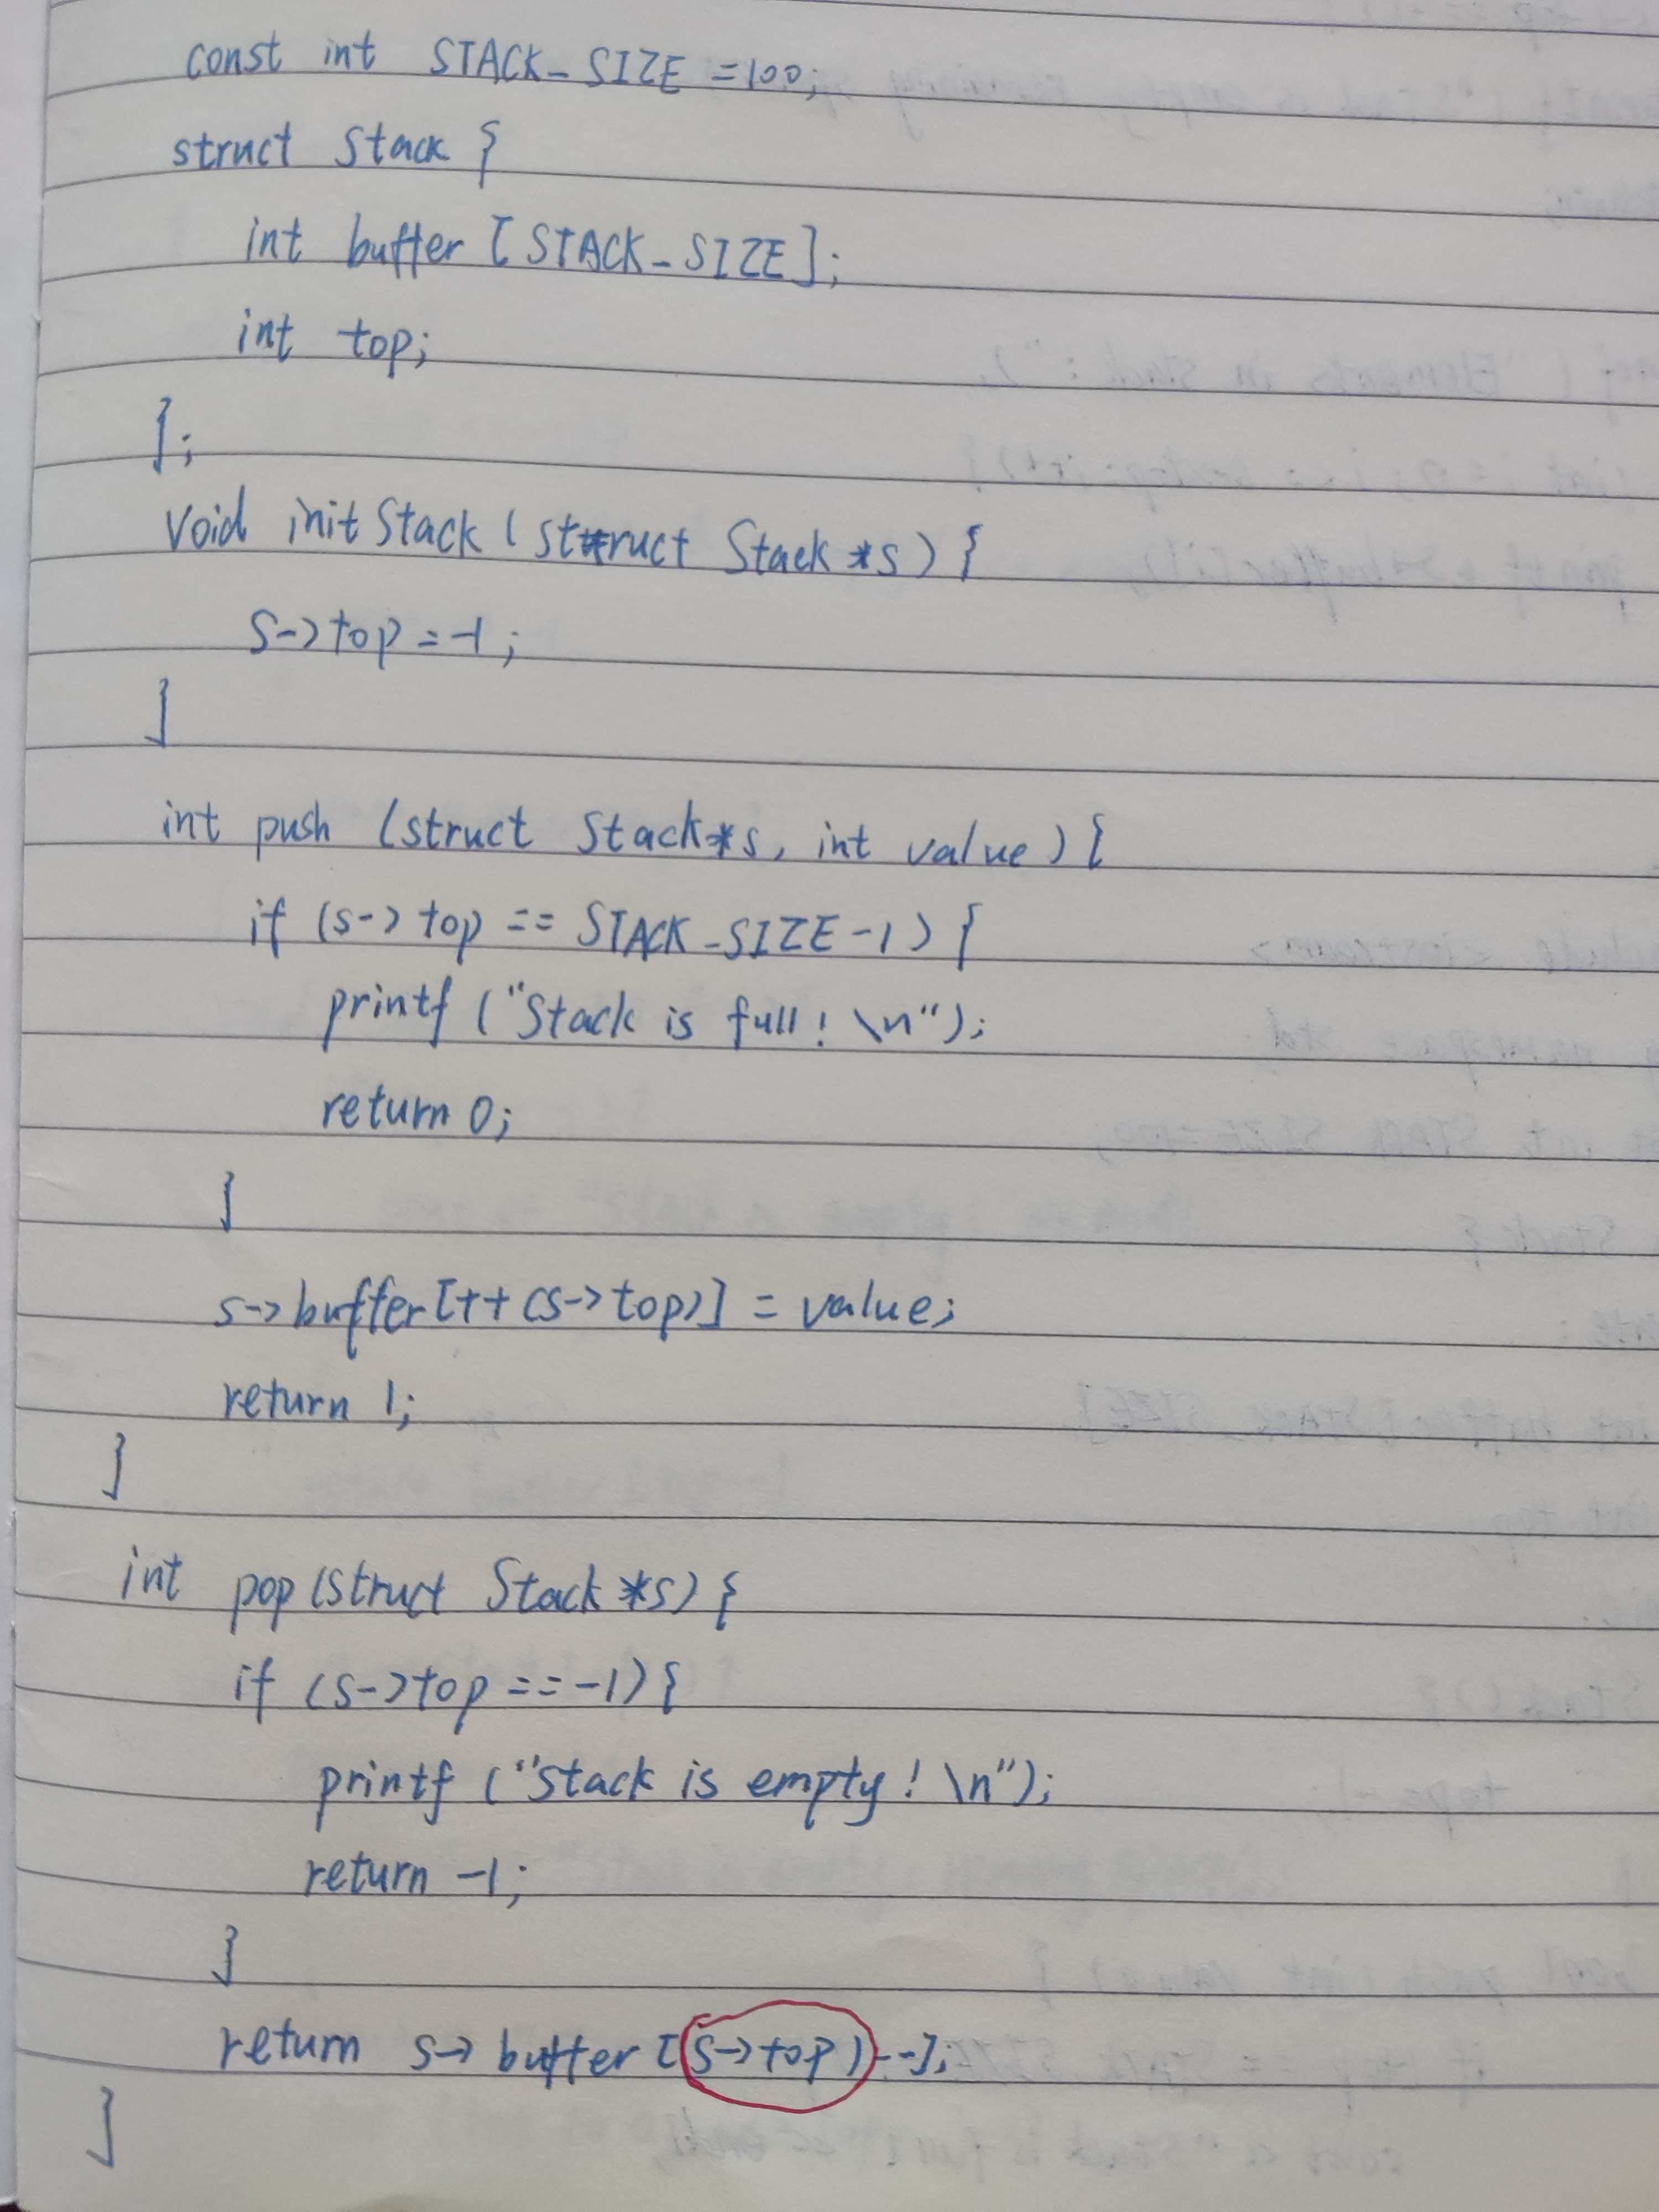 const int STACK_SIZE =100;
struct Stack {
int buffer [STACK_SIZE];
int top;
};
void initStack (struct Stack *s) {
s->top = -1;
}
int push (struct Stack*s, int value) {
if (s-> top == STACK_SIZE-1) {
printf ("Stack is full! \n");
return 0;
}
s->buffer[++(s->top)] = value;
return 1;
}
int pop (struct Stack *s) {
if (s->top == -1) {
printf ("Stack is empty! \n");
return -1;
}
return s-> buffer [(s->top)--];
}